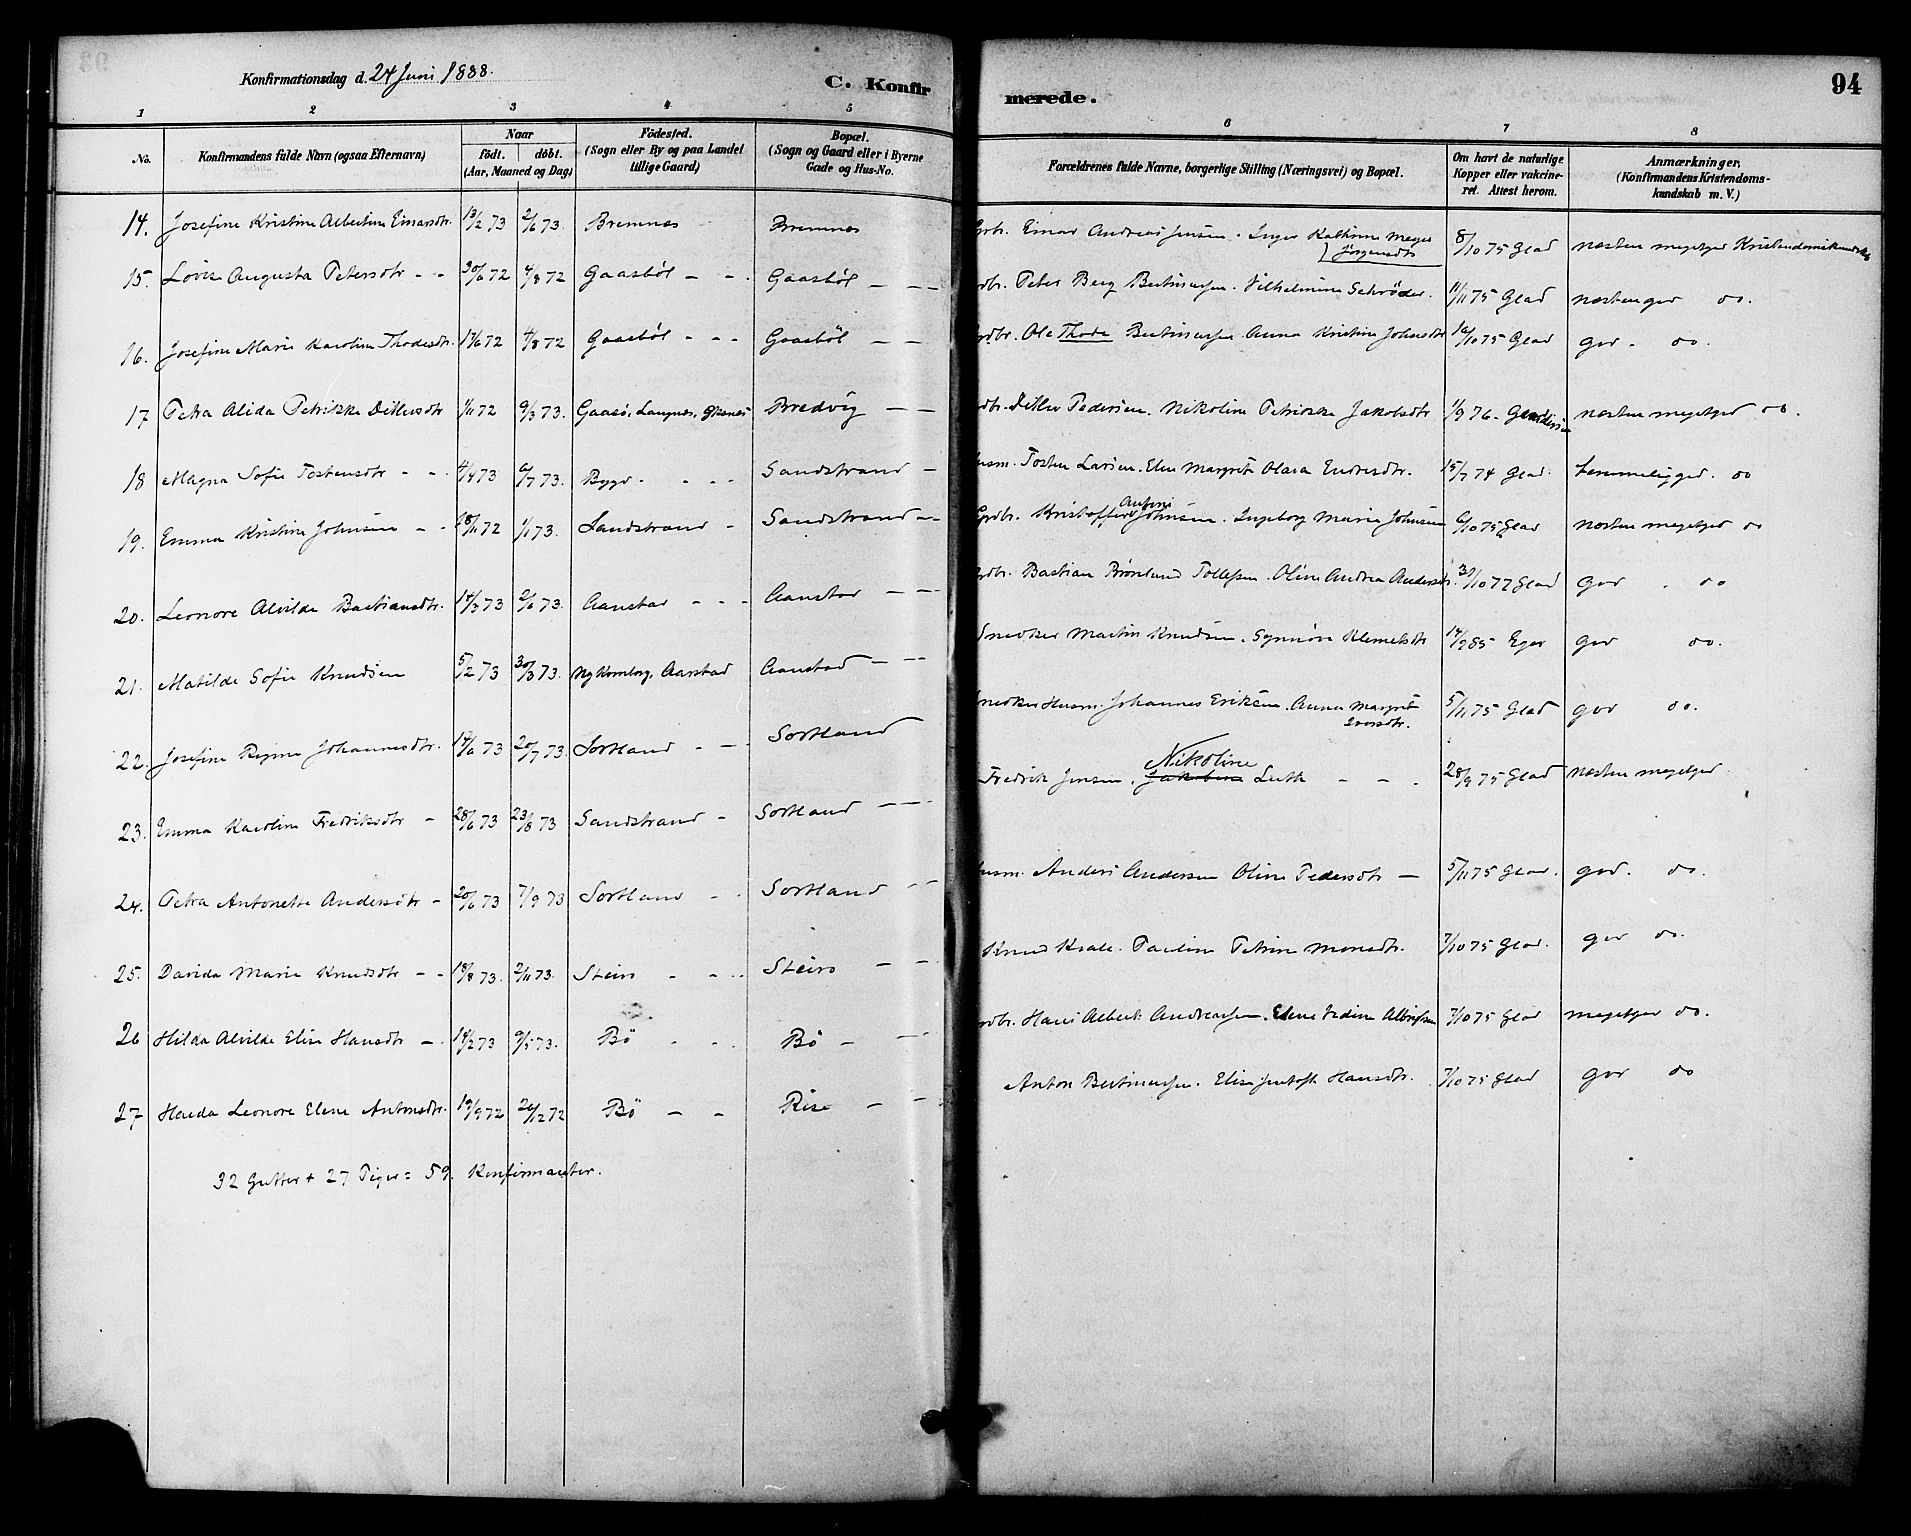 Konfirmationsdag d. 24 Juni 1888.
C. Konfirmerede.
94
1 2 3 4 5 6 7 8
No.
Konfirmandens fulde Navn (ogsaa Efternavn)
Naar
födt. döbt.
(Aar, Maaned og Dag)
Födested.
(Sogn eller By og paa Landet
tillige Gaard)
Bopæl.
(Sogn og Gaard eller i Byerne
Gade og Hus-No.
Forældrenes fulde Navne, borgerlige Stilling (Næringsvei) og Bopæl.
Om havt de naturlige
Kopper eller vakcine-
ret. Attest herom.
Anmærkninger,
(Konfirmandens Kristendoms-
kundskab m. V.)
14. Josefine Kristine Albertine Einarsdtr. 13/2 73 2/6 73 Bremnes Bremnes Einar Andreas Jensen. Inger Kathrine Meyer Jørgensdtr 8/10 75 Glad næsten megetgod Kristendomskundskab
15. Lovise Augusta Petersdtr - - 30/6 72 4/8 72 Gaasböl - - Gaasböl - - Peter Berg Bertinussen. Vilhelmine Schrøder. 11/11 75 Glad næstengod do.
16. Josefine Marie Karoline Thodesdtr. 17/6 72 4/8 72 Gaasböl - - - Gaasböl - - Ole Thode Bertinussen. Anna Kristine Johnsdtr 16/10 75 Glad god - do.
17 Petra Alida Petrikke Ditlevsdtr 1/11 72 9/3 73. Gaasö, Langnes, Øksnes Bredvig - - Ditlev Pedersen. Nikoline Petrikke Jakobsdtr 1/9 76 - næsten megetgod do.
18 Magna Sofie Tostensdtr - - 4/4 73 6/7 73. Bygd. - - - Sandstrand - Husm. Tosten Larsen. Elen Margrit Olava Endresdtr. 15/7 74 Glad. temmeliggod. do
19. Emma Kristine Johnsen - - 18/11 72 1/1 73. Sandstrand - Sandstrand - - Grdbr. Kristoffer Antoni Johnsen. Ingeborg Marie Johnsen 6/10 75 Glad næsten megetgod do
20. Leonore Alvilde Bastiansdtr. 14/3 73 2/6 73. Aanstad - - - Aanstad - - Bastian Brønlund Tollefsen. Oline Andrea Andersdtr. 30/10 77 Glad god . do
21. Matilde Sofie Knudsen 5/2 73 30/3 73. Aanstad Aanstad - - Snedker Martin Knudsen. Synnöve Klemetsdtr 14/9 85 Eger god do.
22. Josefine Regine Johannesdtr. 14/6 73 20/7 73. Sortland - - Sortland Snedker Husm. Johannes Eriksen. Anna Margrit Iversdtr. 5/11 75 Glad god do.
23. Emma Karoline Fredriksdtr - 28/6 73 23/8 73 Sandstrand - Sortland - - Fredrik Jensen, Jakobine Nikoline Luth - - . 28/9 75 Glad næsten megetgod.
24. Petra Antonette Andersdtr - 20/6 73 7/9 73 Sortland - - Sortland - - Husm. Anders Andersen Oline Pedersdtr - 5/11 75 Glad. god. do.
25. Davida Marie Knudsdtr - - 18/8 73. 2/11 73. Steiro - - Steiro - - Knud Kvale. Pauline Petrine Monsdtr. 7/10 75 Glad. god do.
26 Hilda Alvilde Elise Hansdtr - . 14/2 73 9/5 73. Bö - - Bö - - Hans Albert Andreassen. Elene Albrigtsen 7/10 75 Glad megetgod do.
27 Leonore Elene Antonsdtr. 19/9 72 26/12 72 Bö - - Rise - - Anton Bertinussen. Hansdtr. 7/10 75 Glad god do
32 Gutter + 27 Piger = 59. Konfirmanter.